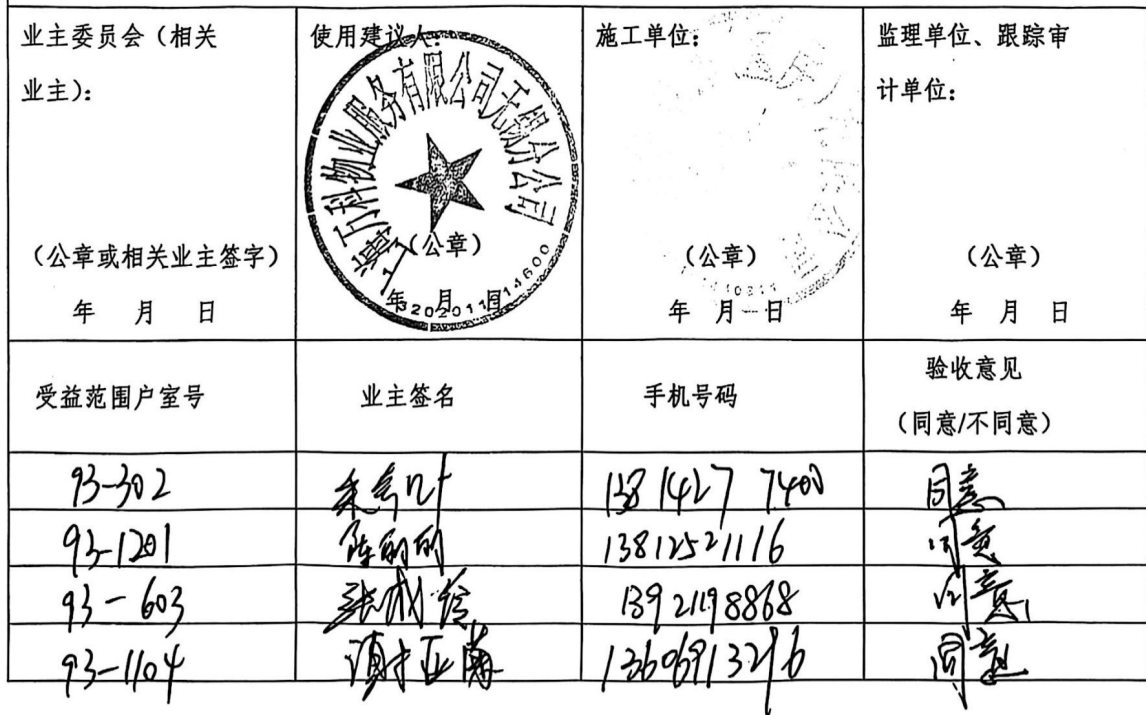 业主委员会（相关
业主）：
（公章或相关业主签字）
年 月 日
使用建议人：
上海万科物业服务有限公司无锡分公司
（公章）
年 月 日
施工单位：
（公章）
年 月 日
监理单位、跟踪审
计单位：
（公章）
年 月 日
受益范围户室号 业主签名 手机号码 验收意见
（同意/不同意）
93-302 13814277400 同意
93-1201 陈丽丽 13812521116 同意
93-603 13921198868 同意
93-1104 13606913296 同意